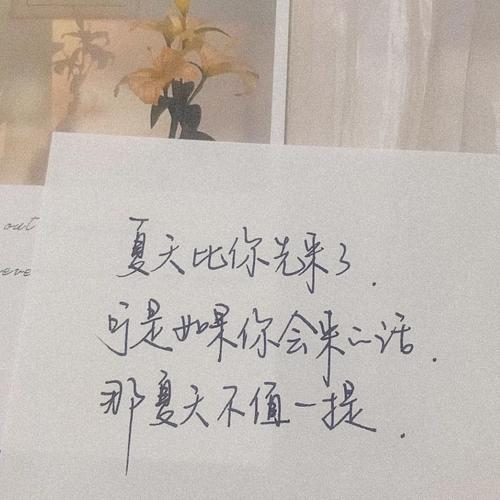 out
eve
夏天比你先来了.
可是如果你会来的话.
那夏天不值一提.